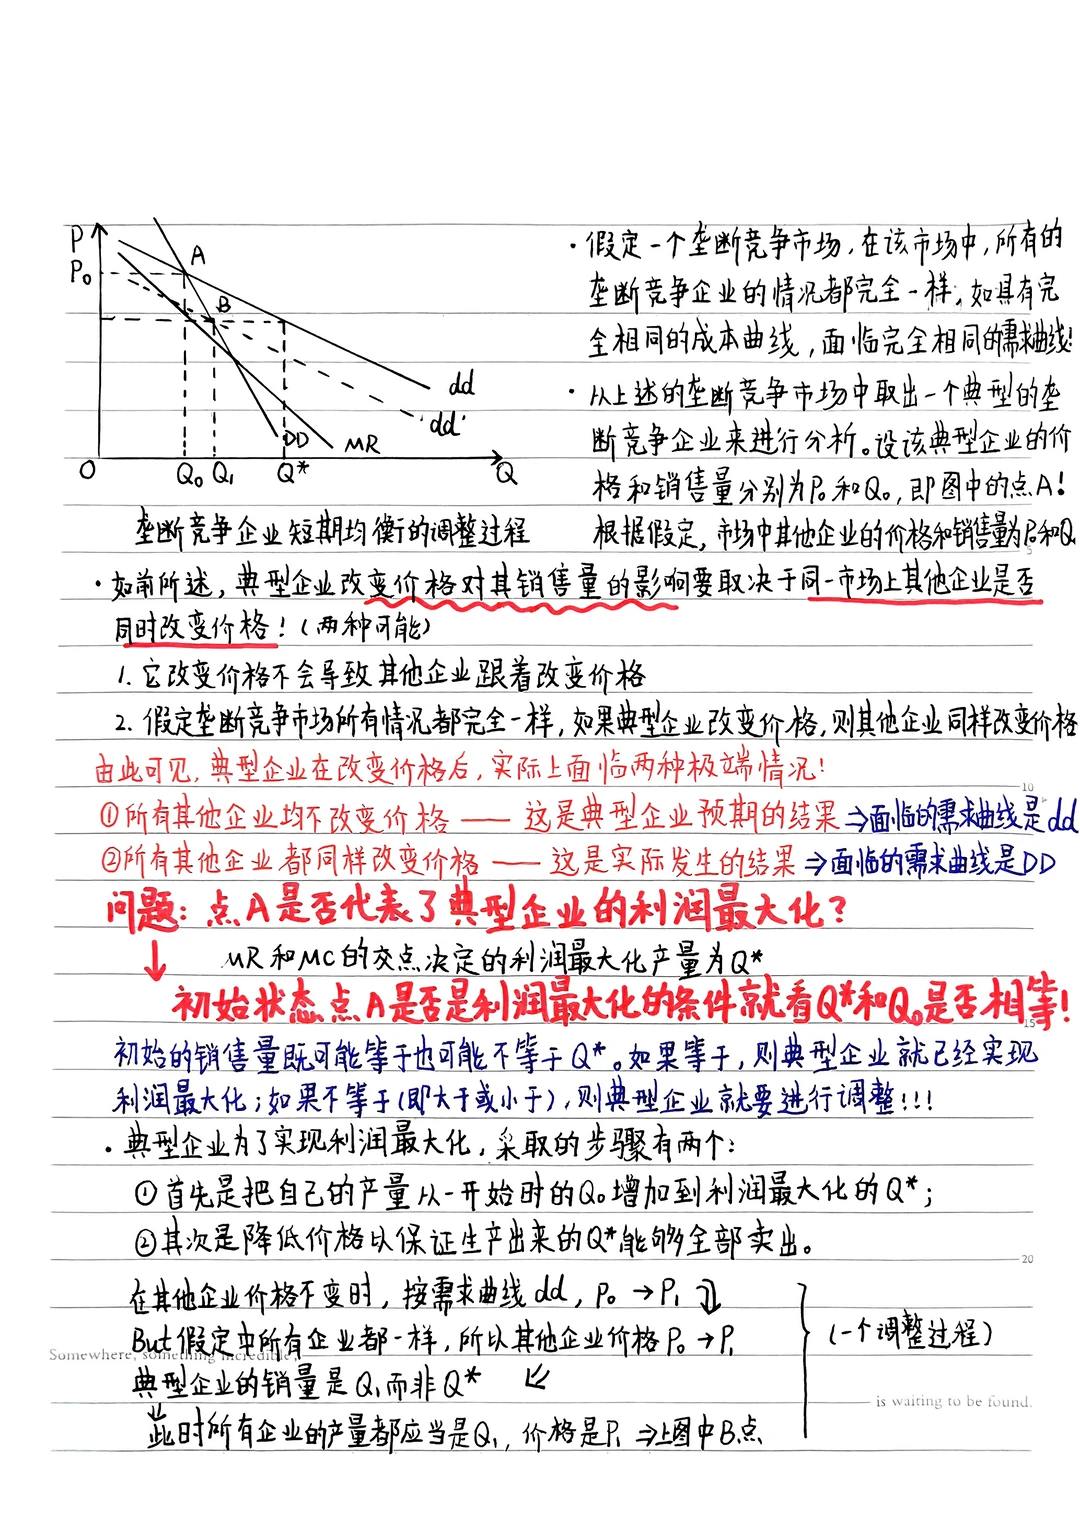 P
P₀
A
B
dd
dd'
DD
MR
O
Q₀ Q₁ Q* Q
垄断竞争企业短期均衡的调整过程
·假定一个垄断竞争市场,在该市场中,所有的
垄断竞争企业的情况都完全一样,如具有完
全相同的成本曲线,面临完全相同的需求曲线!
·从上述的垄断竞争市场中取出一个典型的垄
断竞争企业来进行分析。设该典型企业的价
格和销售量分别为P₀和Q₀,即图中的点A!
根据假定,市场中其他企业的价格和销售量为P₀和Q₀
·如前所述,典型企业改变价格对其销售量的影响要取决于同一市场上其他企业是否
同时改变价格!(两种可能)
1.它改变价格不会导致其他企业跟着改变价格
2.假定垄断竞争市场所有情况都完全一样,如果典型企业改变价格,则其他企业同样改变价格
由此可见,典型企业在改变价格后,实际上面临两种极端情况!
①所有其他企业均不改变价格——这是典型企业预期的结果⇒面临的需求曲线是dd
②所有其他企业都同样改变价格——这是实际发生的结果⇒面临的需求曲线是DD
问题:点A是否代表了典型企业的利润最大化?
↓ MR和MC的交点决定的利润最大化产量为Q*
初始状态点A是否是利润最大化的条件就看Q*和Q₀是否相等!
初始的销售量既可能等于也可能不等于Q*。如果等于,则典型企业就已经实现
利润最大化;如果不等于(即大于或小于),则典型企业就要进行调整!!!
·典型企业为了实现利润最大化,采取的步骤有两个:
①首先是把自己的产量从一开始时的Q₀增加到利润最大化的Q*;
②其次是降低价格以保证生产出来的Q*能够全部卖出。
在其他企业价格不变时,按需求曲线dd,P₀→P₁
But假定中所有企业都一样,所以其他企业价格P₀→P₁
(一个调整过程)
Somewhere, something incredible
典型企业的销量是Q₁而非Q*
is waiting to be found.
此时所有企业的产量都应当是Q₁,价格是P₁⇒上图中B点
5
10
15
20